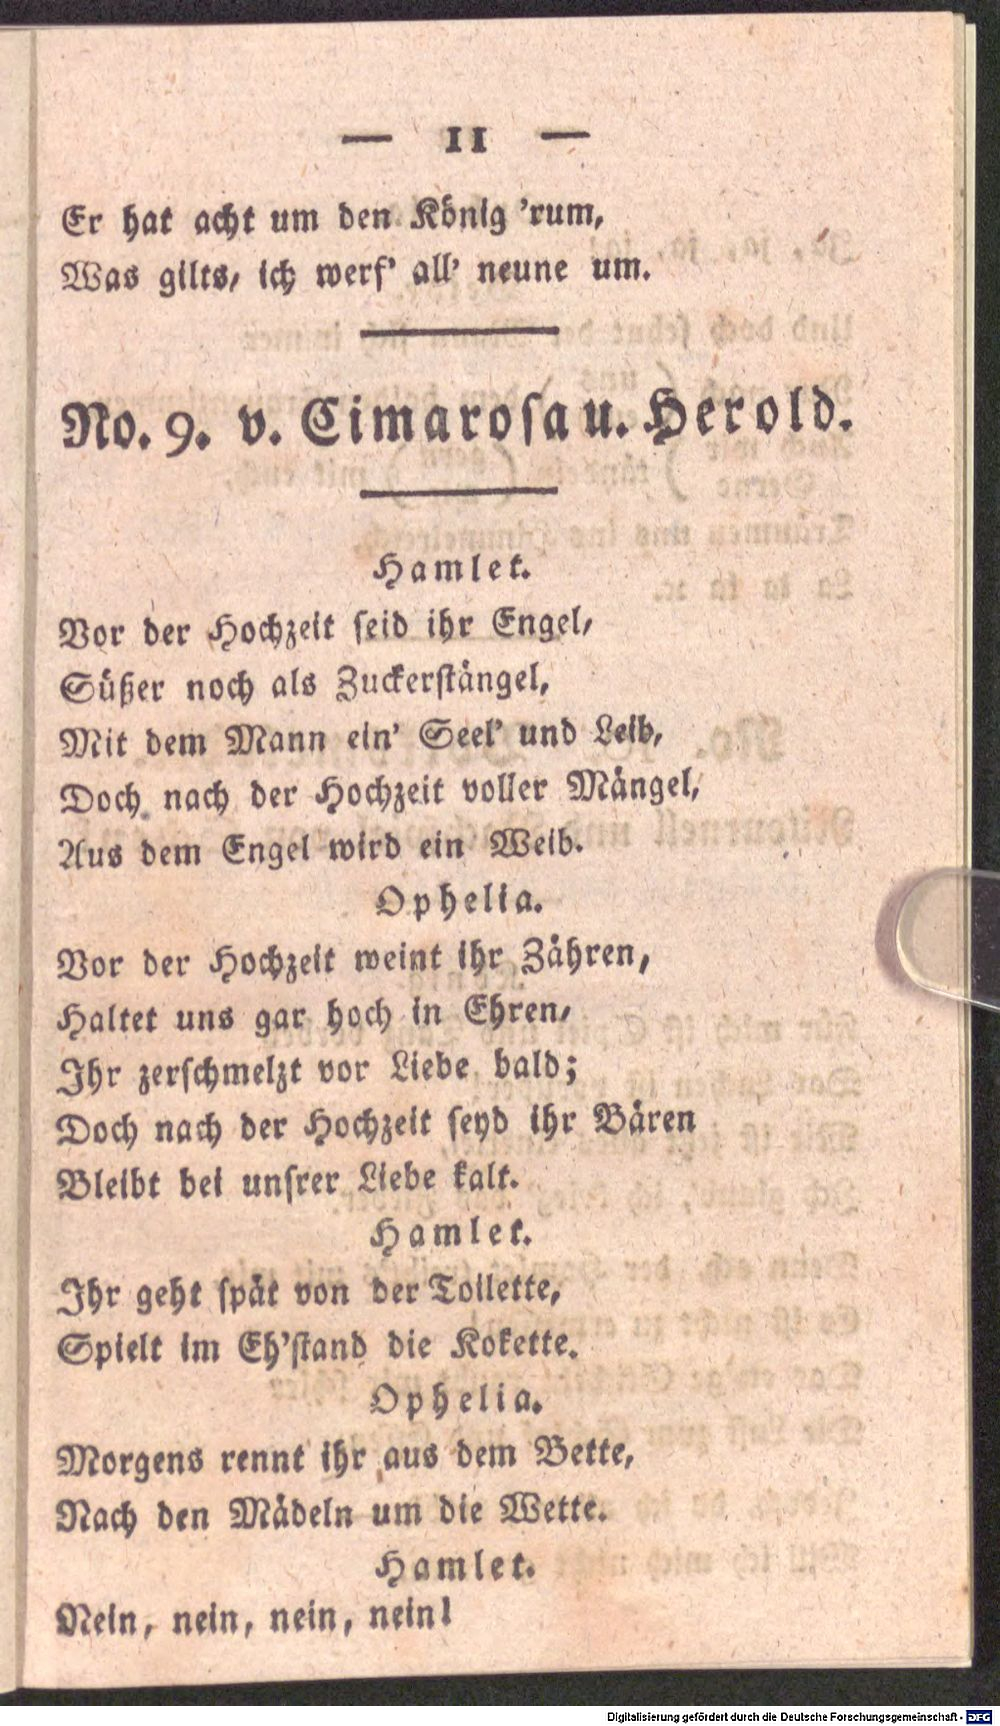 — 11 —
Er hat acht um den König 'rum,
Was gilts, ich werf' all' neune um.
No. 9. v. Cimarosa u. Herold.
Hamlet.
Vor der Hochzeit seid ihr Engel,
Süßer noch als Zuckerstängel,
Mit dem Mann ein' Seel' und Leib,
Doch nach der Hochzeit voller Mängel,
Aus dem Engel wird ein Weib.
Ophelia.
Vor der Hochzeit weint ihr Zähren,
Haltet uns gar hoch in Ehren,
Ihr zerschmelzt vor Liebe bald;
Doch nach der Hochzeit seyd ihr Bären
Bleibt bei unsrer Liebe kalt.
Hamlet.
Ihr geht spät von der Toilette,
Spielt im Eh'stand die Kokette.
Ophelia.
Morgens rennt ihr aus dem Bette,
Nach den Mädeln um die Wette.
Hamlet.
Nein, nein, nein, nein!
Digitalisierung gefördert durch die Deutsche Forschungsgemeinschaft - DFG